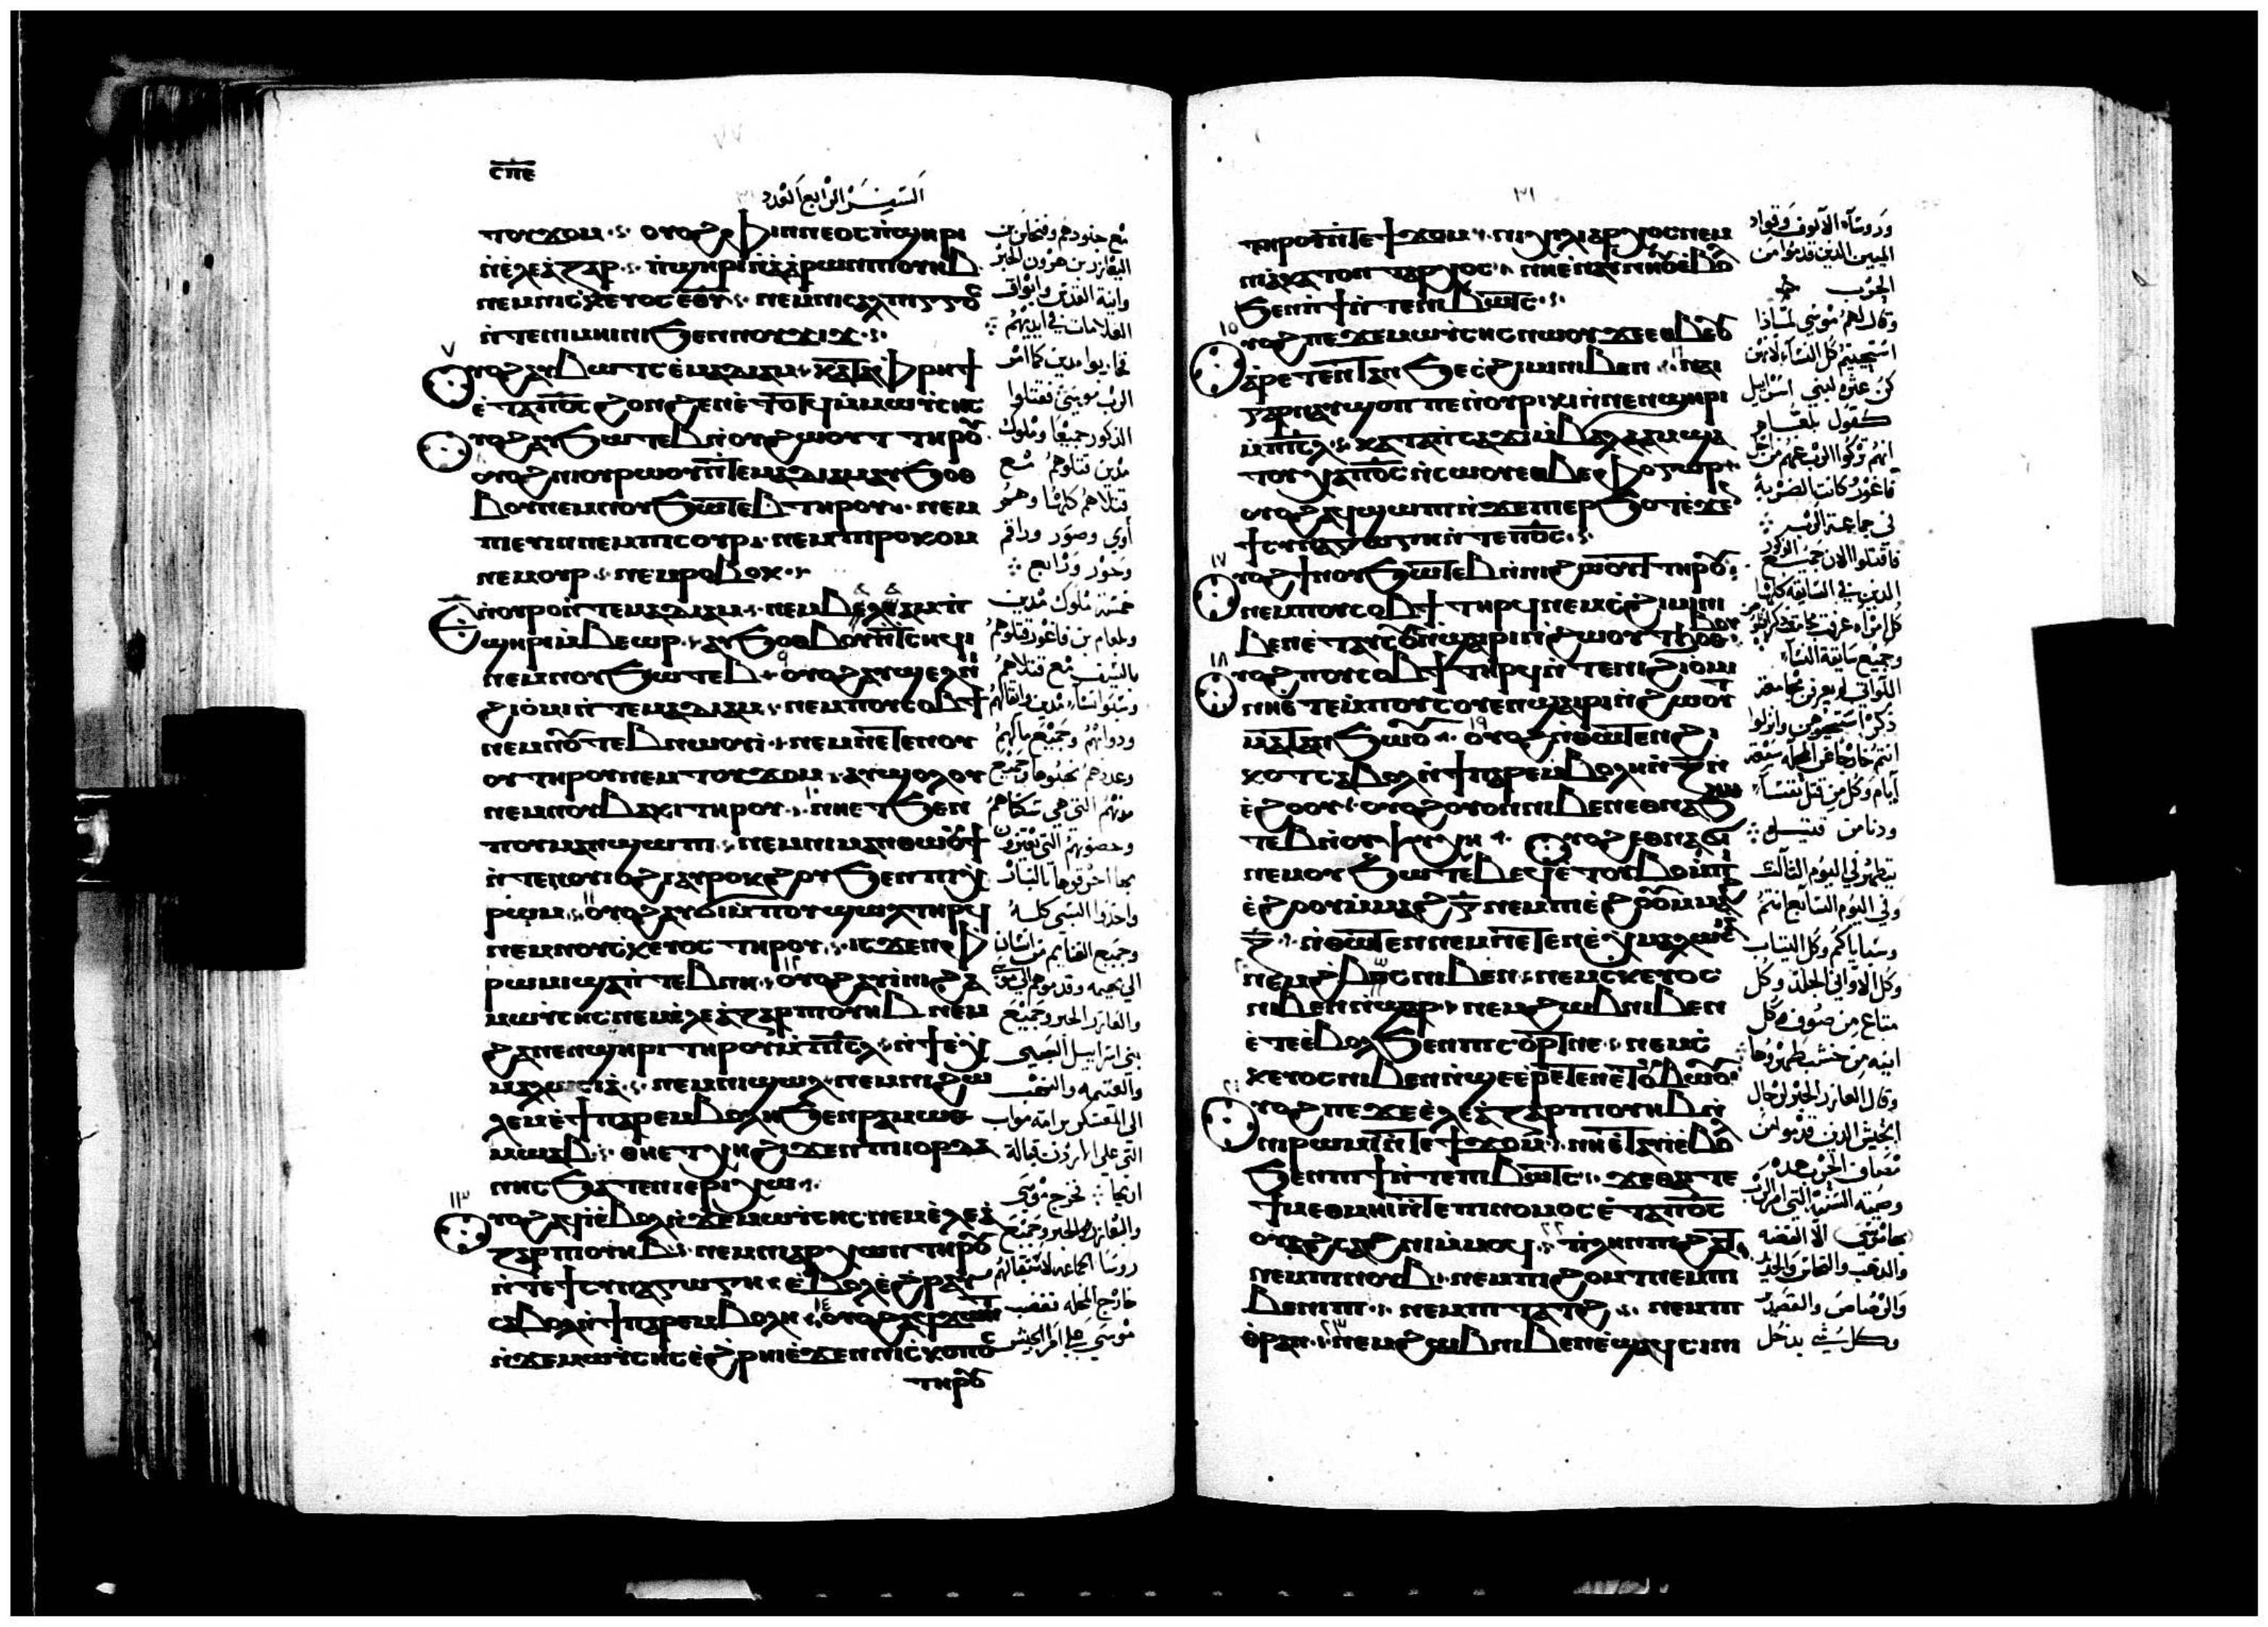 ⲥⲡⲉ
السفر الرابع العدد
ⲧⲟⲩϫⲟⲙ ⲟⲩⲟϩ ⲫⲓⲛⲉⲟⲥ ⲡϣⲏⲣⲓ
ⲛⲉⲗⲉⲁⲍⲁⲣ ⲡϣⲏⲣⲓ ⲛⲁⲁⲣⲱⲛ ⲡⲟⲩⲏⲃ
ⲛⲉⲙ ⲛⲓⲥⲕⲉⲩⲟⲥ ⲉⲑⲩ ⲛⲉⲙ ⲛⲓⲥⲁⲗⲡⲓⲅⲅⲟⲥ
ⲛⲧⲉ ⲛⲓⲙⲏⲓⲛⲓ ϧⲉⲛ ⲛⲟⲩϫⲓϫ
ⲟⲩⲟϩ ⲁⲩⲃⲱⲧⲥ ⲉⲙⲁⲇⲓⲁⲙ ⲕⲁⲧⲁ ⲫⲣⲏϯ
ⲉⲧⲁ ⲡⲟⲥ ϩⲟⲛϩⲉⲛ ⲉⲧⲟⲧϥ ⲙⲙⲱⲩⲥⲏⲥ
ⲟⲩⲟϩ ⲁⲩϧⲱⲧⲉⲃ ⲛϩⲱⲟⲩⲧ ⲧⲏⲣⲟⲩ
ⲟⲩⲟϩ ⲛⲓⲟⲩⲣⲱⲟⲩ ⲛⲧⲉ ⲙⲁⲇⲓⲁⲙ ⲁⲩϧⲟⲑ
ⲃⲟⲩ ⲛⲉⲙ ⲛⲟⲩϧⲱⲧⲉⲃ ⲧⲏⲣⲟⲩ ⲛⲉⲙ
ⲡⲓⲉⲩⲓⲛ ⲛⲉⲙ ⲡⲓⲥⲟⲩⲣ ⲛⲉⲙ ⲡⲓⲣⲟⲕⲟⲙ
ⲛⲉⲙ ⲟⲩⲣ ⲛⲉⲙ ⲣⲟⲃⲟⲕ
ⲉ ⲛⲟⲩⲣⲟ ⲛⲧⲉ ⲙⲁⲇⲓⲁⲙ ⲛⲉⲙ ⲃⲁⲗⲁⲁⲙ ⲡ
ϣⲏⲣⲓ ⲙⲃⲉⲱⲣ ⲁⲩϧⲟⲑⲃⲟⲩ ⲛⲧⲥⲏϥⲓ
ⲛⲉⲙ ⲛⲟⲩϧⲱⲧⲉⲃ ⲟⲩⲟϩ ⲁⲩϣⲉⲗ ⲛⲓ
ϩⲓⲟⲙⲓ ⲛⲧⲉ ⲙⲁⲇⲓⲁⲙ ⲛⲉⲙ ⲡⲟⲩⲥⲟⲃϯ
ⲛⲉⲙ ⲛⲟⲩⲧⲉⲃⲛⲱⲟⲩⲓ ⲛⲉⲙ ⲛⲉⲧⲉⲛⲟⲩ
ⲟⲩ ⲧⲏⲣⲟⲩ ⲛⲉⲙ ⲧⲟⲩϫⲟⲙ ⲁⲩϣⲟⲗⲟⲩ
ⲛⲉⲙ ⲛⲟⲩⲃⲁⲕⲓ ⲧⲏⲣⲟⲩ ⲛⲏⲉⲧϧⲉⲛ
ⲛⲟⲩⲙⲁⲛϣⲱⲡⲓ ⲛⲉⲙ ⲛⲓⲙⲁⲛⲑⲱⲟⲩϯ
ⲛⲧⲉ ⲛⲟⲩⲓⲟϩⲓ ⲁⲩⲣⲟⲕϩⲟⲩ ϧⲉⲛ ⲡⲓⲭ
ⲣⲱⲙ ⲟⲩⲟϩ ⲁⲩϭⲓ ⲙⲡⲟⲩϣⲱⲗ ⲧⲏⲣϥ
ⲛⲉⲙ ⲛⲟⲩⲥⲕⲉⲩⲟⲥ ⲧⲏⲣⲟⲩ ⲓⲥϫⲉⲛ ⲫ
ⲣⲱⲙⲓ ϣⲁ ⲛⲧⲉⲃⲛⲏ ⲟⲩⲟϩ ⲁⲩⲓⲛⲓ ϩⲁ
ⲙⲱⲩⲥⲏⲥ ⲛⲉⲙ ⲉⲗⲉⲁⲍⲁⲣ ⲡⲟⲩⲏⲃ ⲛⲉⲙ
ϩⲁ ⲛⲉⲛϣⲏⲣⲓ ⲧⲏⲣⲟⲩ ⲙⲡⲓⲥⲗ ⲛϯⲉⲭ
ⲙⲁⲗⲱⲥⲓⲁ ⲛⲉⲙ ⲛⲓϣⲱⲗ ⲛⲉⲙ ⲛⲓϩⲱ
ⲗⲉⲙ ⲉϯⲡⲁⲣⲉⲙⲃⲟⲗⲏ ϧⲉⲛ ⲣⲁⲙⲱⲑ
ⲙⲱⲁⲃ ⲑⲏⲉⲧⲭⲏ ϩⲓϫⲉⲛ ⲡⲓⲓⲟⲣⲇⲁ
ⲛⲏⲥ ϧⲁⲧⲉⲛ ⲓⲉⲣⲓⲭⲱ
ⲟⲩⲟϩ ⲁϥⲓ ⲉⲃⲟⲗ ⲛϫⲉ ⲙⲱⲩⲥⲏⲥ ⲛⲉⲙ ⲉⲗⲉⲁ
ⲍⲁⲣ ⲡⲟⲩⲏⲃ ⲛⲉⲙ ⲛⲓⲁⲣⲭⲱⲛ ⲧⲏⲣⲟⲩ
ⲛⲧⲉ ϯⲥⲩⲛⲁⲅⲱⲅⲏ ⲉⲃⲟⲗ ⲉϩⲣⲁⲩ
ⲥⲁⲃⲟⲗ ⲛϯⲡⲁⲣⲉⲙⲃⲟⲗⲏ ⲟⲩⲟϩ ⲁϥϫⲱⲛⲧ
ⲛϫⲉ ⲙⲱⲩⲥⲏⲥ ⲉϩⲣⲏⲓ ⲉϫⲉⲛ ⲛⲓⲥⲕⲟⲡⲟⲥ
ⲧⲏⲣⲟⲩ
مع جنودهم وفنحاس بن
اليعازر بن هرون الحبر
وانية القدس وابواق
العلامات في ايديهم
فحاربوا مدين كما امر
الرب موسى فقتلوا
الذكور جميعا وملوك
مدين قتلوهم مع
قتلاهم كلها وهمو
اوي وصور وراقم
وحور ورابع
خمسة ملوك مدين
وبلعام بن فاغور قتلوهم
بالسيف مع قتلاهم
وسبوا نساء مدين واثقالهم
ودوابهم وجميع مالهم
وعددهم نهبوها وجميع
مدنهم التي هي سكناهم
واخذوا السبي كله
وجميع الغنائم من انسان
الى بهيمه وقدموهم الى موسى
والعازر الحبر وجميع
بني اسرائيل السبي
الى المعسكر براموت مواب
التي على الاردن قبالة
اريحا فخرج موسى
والعازر الحبر وجميع
روسا الجماعه لاستقبالهم
خارج المحله فغضب
موسى على امرا الجيش
٣١
ⲧⲏⲣⲟⲩ ⲛⲧⲉ ϯϫⲟⲙ ⲛⲓⲭⲓⲗⲓⲁⲣⲭⲟⲥ ⲛⲉⲙ
ⲛⲓⲉⲕⲁⲧⲟⲛⲧⲁⲣⲭⲟⲥ ⲛⲏⲉⲧⲁⲩⲛⲏⲟⲩ ⲉⲃⲟⲗ
ϧⲉⲛ ⲡϯ ⲛⲧⲉ ⲡⲓⲃⲱⲧⲥ
ⲟⲩⲟϩ ⲡⲉϫⲉ ⲙⲱⲩⲥⲏⲥ ⲛⲱⲟⲩ ϫⲉ ⲉⲑⲃⲉⲟⲩ
ⲁⲣⲉⲧⲉⲛⲧⲁⲛϧⲉ ⲥϩⲓⲙⲓ ⲛⲓⲃⲉⲛ ⲛⲁⲓ
ⲅⲁⲣ ⲛⲁⲩϣⲟⲡ ⲡⲉ ⲛⲟⲩⲣⲓⲕⲓ ⲛⲛⲉⲛϣⲏⲣⲓ
ⲙⲡⲓⲥⲗ ⲕⲁⲧⲁ ⲡⲥⲁϫⲓ ⲙⲃⲁⲗⲁⲁⲙ ϣⲁ
ⲧⲟⲩⲭⲁ ⲡⲟⲥ ⲛⲥⲱⲟⲩ ⲉⲑⲃⲉ ⲫⲟⲅⲱⲣ
ⲟⲩⲟϩ ⲁϥϣⲱⲡⲓ ⲛϫⲉ ⲡⲓⲉⲣϧⲟⲧ ⲉϫⲉⲛ
ϯⲥⲩⲛⲁⲅⲱⲅⲏ ⲛⲧⲉ ⲡⲟⲥ
ⲟⲩⲟϩ ϯⲛⲟⲩ ϧⲱⲧⲉⲃ ⲛⲛⲓϩⲱⲟⲩⲧ ⲧⲏⲣⲟⲩ
ⲛⲉⲙ ⲡⲟⲩⲥⲟⲃϯ ⲧⲏⲣϥ ⲛⲉⲙ ⲥϩⲓⲙⲓ ⲛⲓ
ⲃⲉⲛ ⲉⲧⲁⲥⲥⲟⲩⲉⲛ ϣⲁⲓⲣⲓ ⲛϩⲱⲟⲩⲧ ϧⲟⲑⲃⲟⲩ
ⲟⲩⲟϩ ⲡⲟⲩⲥⲟⲃϯ ⲧⲏⲣϥ ⲛⲧⲉ ⲛⲓϩⲓⲟⲙⲓ
ⲛⲏⲉⲧⲉ ⲙⲡⲟⲩⲥⲟⲩⲉⲛ ϣⲁⲓⲣⲓ ⲛϩⲱⲟⲩⲧ
ⲙⲁⲧⲁⲛϧⲱⲟⲩ ⲟⲩⲟϩ ⲛⲑⲱⲧⲉⲛ ϩⲓ
ⲕⲟⲧ ⲥⲁⲃⲟⲗ ⲛϯⲡⲁⲣⲉⲙⲃⲟⲗⲏ ⲛⲍ ⲛ
ⲉϩⲟⲟⲩ ⲟⲩⲟϩ ⲟⲩⲟⲛ ⲛⲓⲃⲉⲛ ⲉⲑⲛⲁϧⲱ
ⲧⲉⲃ ⲛⲟⲩⲯⲩⲭⲏ ⲟⲩⲟϩ ⲉⲑⲛⲁϭⲓ
ⲛⲉⲙ ⲟⲩϧⲱⲧⲉⲃ ⲉϥⲉⲧⲟⲩⲃⲟ ⲙⲡⲓ
ⲉϩⲟⲟⲩ ⲙⲙⲁϩⲅ ⲛⲉⲙ ⲡⲓⲉϩⲟⲟⲩ ⲙⲙⲁϩ
ⲍ ⲛⲑⲱⲧⲉⲛ ⲛⲉⲙ ⲛⲉⲧⲉⲛⲉⲭⲙⲁⲗⲱⲥⲓⲁ
ⲛⲉⲙ ϩⲃⲱⲥ ⲛⲓⲃⲉⲛ ⲛⲉⲙ ⲥⲕⲉⲩⲟⲥ
ⲛⲓⲃⲉⲛ ⲛϣⲁⲣ ⲛⲉⲙ ϩⲱⲃ ⲛⲓⲃⲉⲛ
ⲉⲧⲉ ⲉⲃⲟⲗ ϧⲉⲛ ⲡⲓⲥⲟⲣⲧ ⲛⲉ ⲛⲉⲙ ⲥ
ⲕⲉⲩⲟⲥ ⲛⲓⲃⲉⲛ ⲛϣⲉ ⲉⲣⲉⲧⲉⲛⲉⲧⲟⲩⲃⲱⲟⲩ
ⲟⲩⲟϩ ⲡⲉϫⲉ ⲉⲗⲉⲁⲍⲁⲣ ⲡⲟⲩⲏⲃ ⲛ
ⲛⲓⲣⲱⲙⲓ ⲛⲧⲉ ϯϫⲟⲙ ⲛⲏⲉⲧⲁⲩⲓ ⲉⲃⲟⲗ
ϧⲉⲛ ⲡϯ ⲛⲧⲉ ⲡⲓⲃⲱⲧⲥ ϫⲉ ⲑⲁⲓ ⲧⲉ
ϯⲙⲉⲑⲙⲏⲓ ⲛⲧⲉ ⲡⲓⲛⲟⲙⲟⲥ ⲉⲧⲁ ⲡⲟⲥ
ⲟⲩⲁϩⲥⲁϩⲛⲓ ⲙⲙⲟϥ ⲡⲗⲏⲛ ⲡⲓϩⲁⲧ
ⲛⲉⲙ ⲡⲓⲛⲟⲩⲃ ⲛⲉⲙ ⲡⲓϩⲟⲙⲧ ⲛⲉⲙ ⲡⲓ
ⲃⲉⲛⲓⲡⲓ ⲛⲉⲙ ⲡⲓⲧⲁⲧϩ ⲛⲉⲙ ⲡⲓ
ⲑⲣⲁⲛ ⲛⲉⲙ ϩⲱⲃ ⲛⲓⲃⲉⲛ ⲉϣⲁϥⲥⲓⲛⲓ
وروساء الالوف وقواد
الميين الذين قدموا من
الحرب
وقال لهم موسى لماذا
استحييتم كل النساء لان هن
كن عثره لبني اسراييل
كقول بلعام
فاغور كانت الضربة
في جماعة الرب
فاقتلوا الان جميع الذكور
وجميع سابقة النساء
اللواتي لم يعرفن مجامعة
ذكر استحيوهن وانزلوا
انتم خارجا عن المحله سبعة
ايام وكل من قتل نفسا
ودنا من قتيل
يتطهر في اليوم الثالث
وفي اليوم السابع انتم
وسباياكم وكل الثياب
وكل الاواني الجلد وكل
متاع من صوف وكل
انيه من خشب طهروها
وقال العازر الحبر لرجال
الجيش الذين قدموا من
مصاف الحرب هذه
وصية السنة التي امر الرب
بها موسى الا الفضه
والذهب والنحاس والحديد
والرصاص والقصدير
وكل شي يدخل